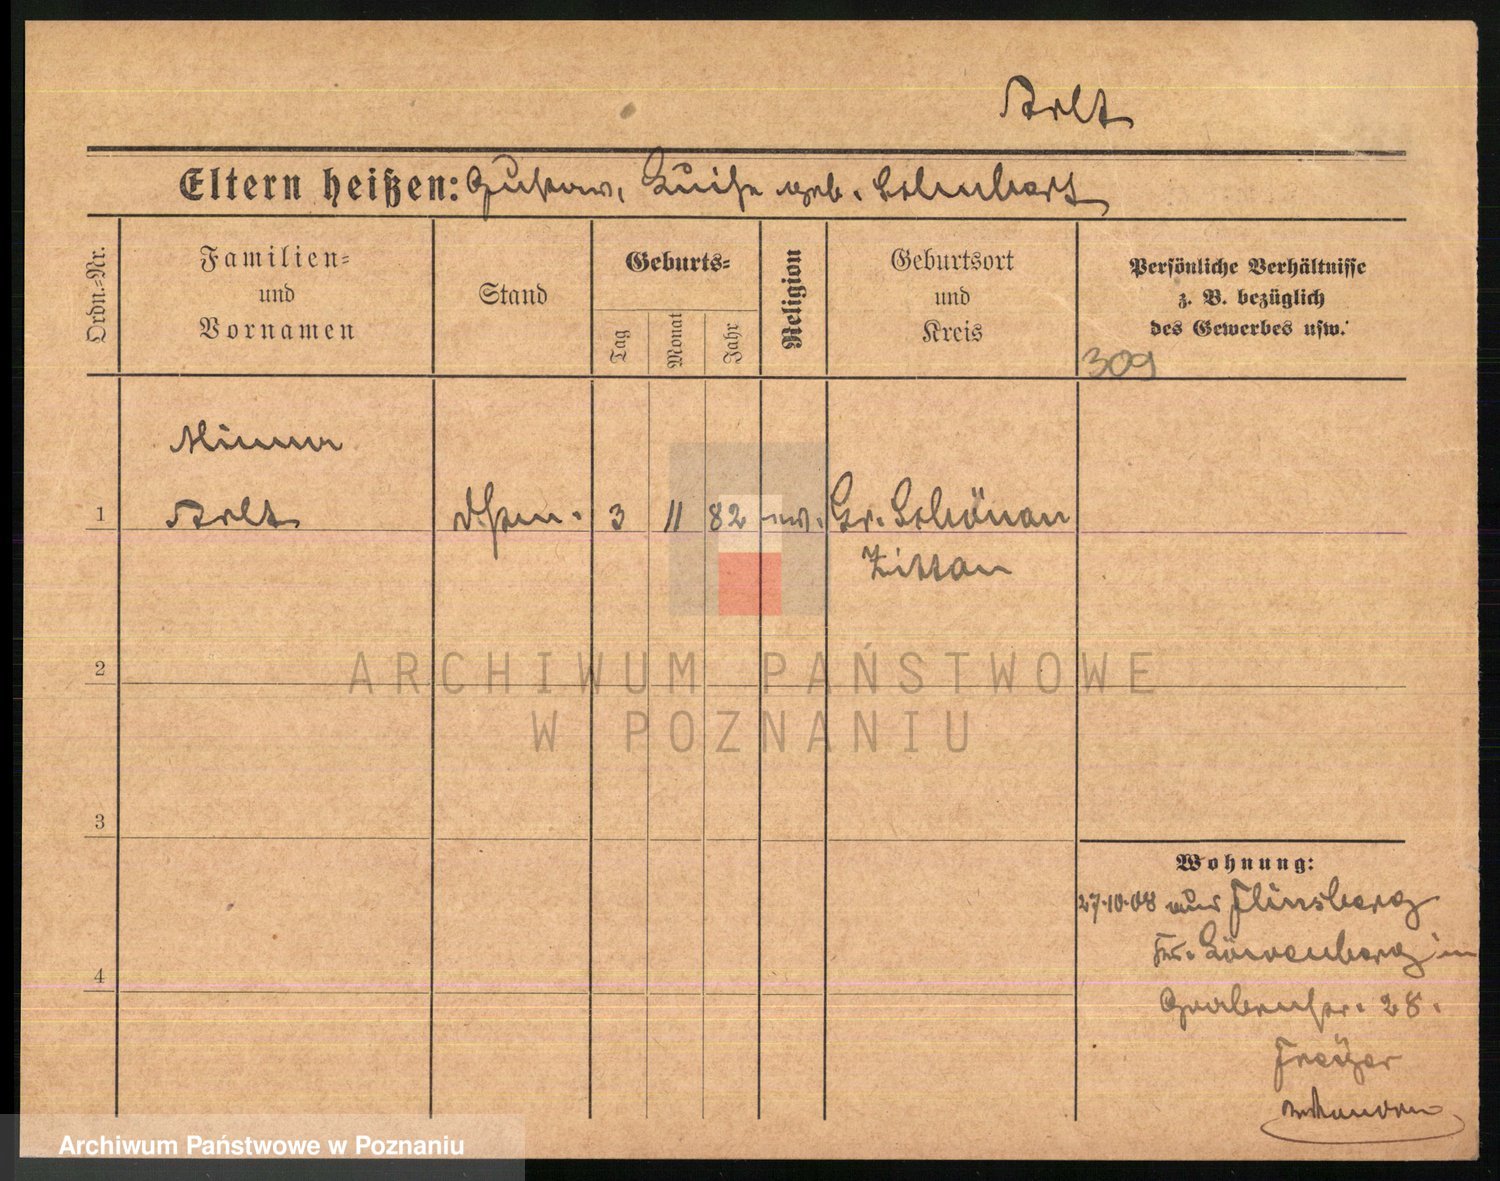 Arlt
Eltern heißen: Gustav, Luise geb. Schubert
Ordn.=Nr.
Familien=
und
Vornamen
Stand
Geburts=
Tag
Monat
Jahr
Religion
Geburtsort
und
Kreis
Persönliche Verhältnisse
z. B. bezüglich
des Gewerbes usw.
309
Minna
1 Arlt 3 11 82 ev. Gr. Schönau
Zittau
2
ARCHIWUM PAŃSTWOWE
W POZNANIU
3
Wohnung:
27.10.08 aus Flinsberg
Kr. Löwenberg in
Grabenstr. 28.
4
Archiwum Państwowe w Poznaniu